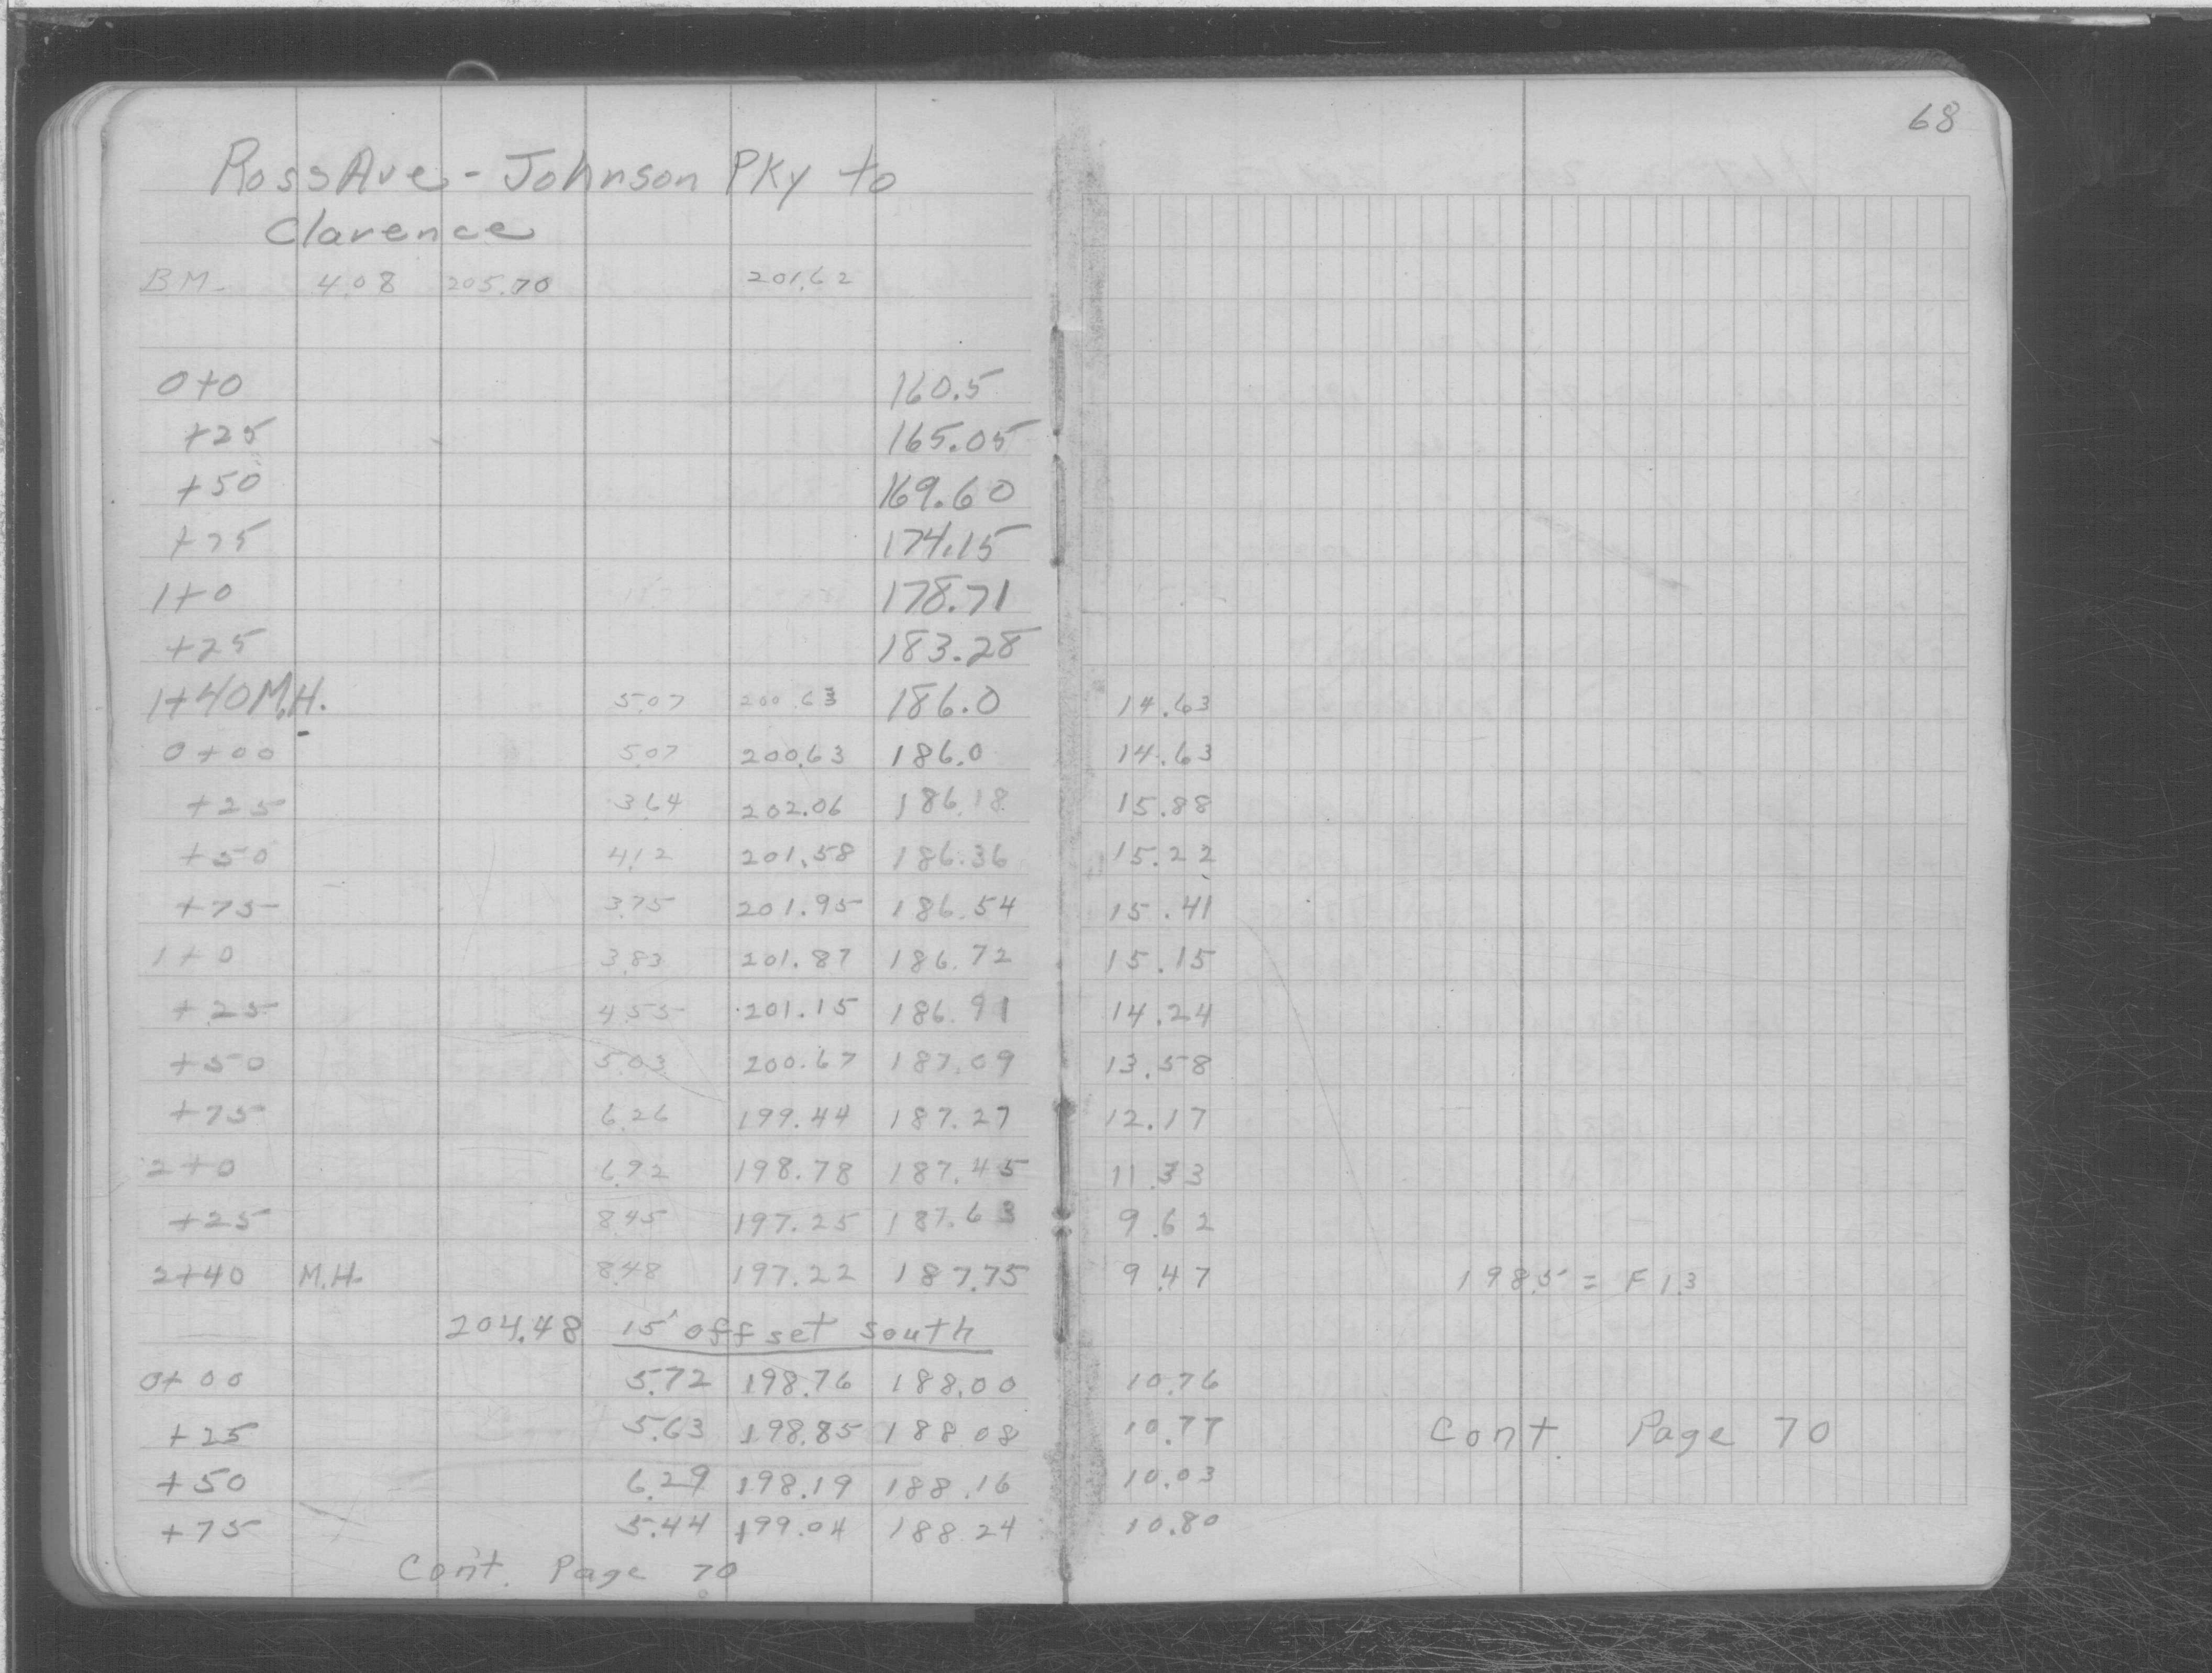 68
Ross Ave - Johnson PKy to
Clarence
B.M. 4.08 205.70 201.62
0+0 160.5
+25 165.05
+50 169.60
+75 174.15
1+0 178.71
+25 183.28
1+40 M.H. 5.07 200.63 186.0 14.63
0+00 5.07 200.63 186.0 14.63
+25 3.64 202.06 186.18 15.88
+50 4.12 201.58 186.36 15.22
+75 3.75 201.95 186.54 15.41
1+0 3.83 201.87 186.72 15.15
+25 4.55 201.15 186.91 14.24
+50 5.03 200.67 187.09 13.58
+75 6.26 199.44 187.27 12.17
2+0 6.92 198.78 187.45 11.33
+25 8.45 197.25 187.63 9.62
2+40 M.H. 8.48 197.22 187.75 9.47 198.5 = F 1.3
204.48 15' offset south
0+00 5.72 198.76 188.00 10.76
+25 5.63 198.85 188 08 10.77 Cont. Page 70
+50 6.29 198.19 188.16 10.03
+75 5.44 199.04 188 24 10.80
Con't. Page 70